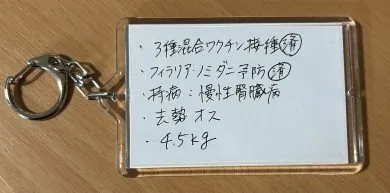 ・3種混合ワクチン接種㊒済
・フィラリア・ノミダニ予防 済
・持病：慢性腎臓病
・去勢オス
・4.5kg